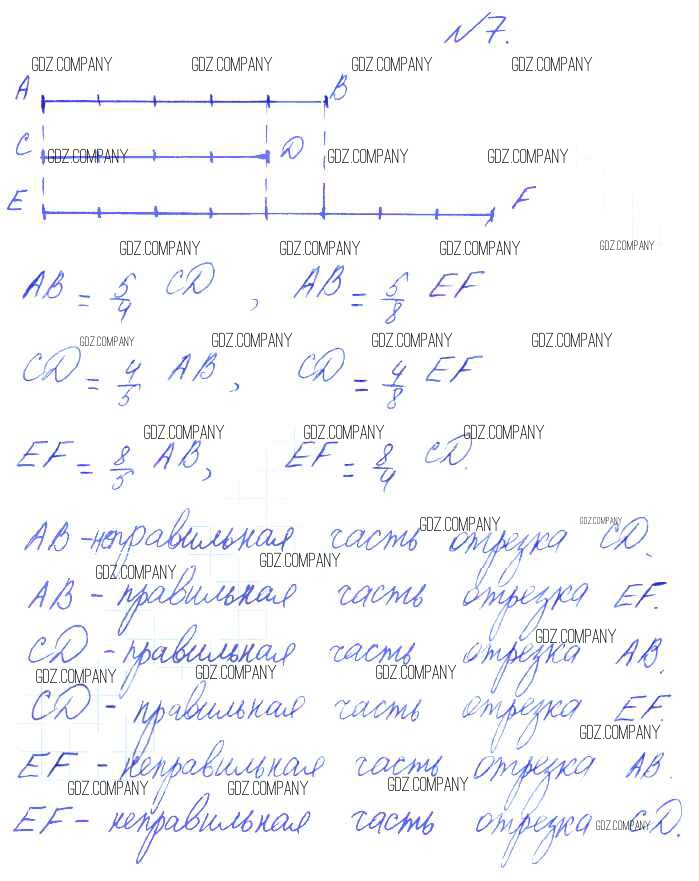 №7.
GDZ.COMPANY GDZ.COMPANY GDZ.COMPANY GDZ.COMPANY
A B
C GDZ.COMPANY D GDZ.COMPANY GDZ.COMPANY
E F
GDZ.COMPANY GDZ.COMPANY GDZ.COMPANY GDZ.COMPANY
AB = 5/4 CD, AB = 5/8 EF
GDZ.COMPANY GDZ.COMPANY GDZ.COMPANY GDZ.COMPANY
CD = 4/5 AB, CD = 4/8 EF
GDZ.COMPANY GDZ.COMPANY GDZ.COMPANY
EF = 8/5 AB, EF = 8/4 CD.
GDZ.COMPANY GDZ.COMPANY
AB - неправильная часть отрезка CD.
GDZ.COMPANY GDZ.COMPANY
AB - правильная часть отрезка EF.
GDZ.COMPANY
CD - правильная часть отрезка AB.
GDZ.COMPANY GDZ.COMPANY GDZ.COMPANY
CD - правильная часть отрезка EF.
GDZ.COMPANY
EF - неправильная часть отрезка AB.
GDZ.COMPANY GDZ.COMPANY GDZ.COMPANY
EF - неправильная часть отрезка CD.
GDZ.COMPANY